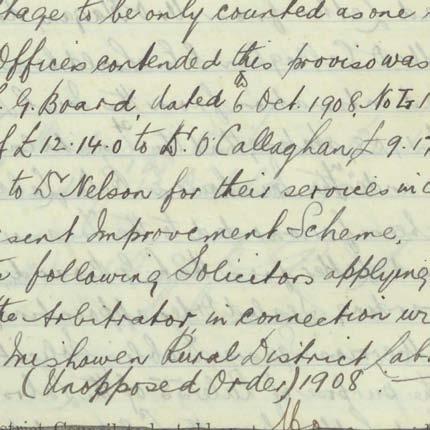 tage to be only counted as one
Officers contended this proviso was
. G. Board, dated 6th Oct. 1908, No
of £12.14.0 to Dr. O'Callaghan, £9.1
to Dr Nelson for their services in
sent Improvement Scheme,
following Solicitors applying
the Arbitrator in connection wi
Inishowen Rural District Lab
(Unopposed Order) 1908